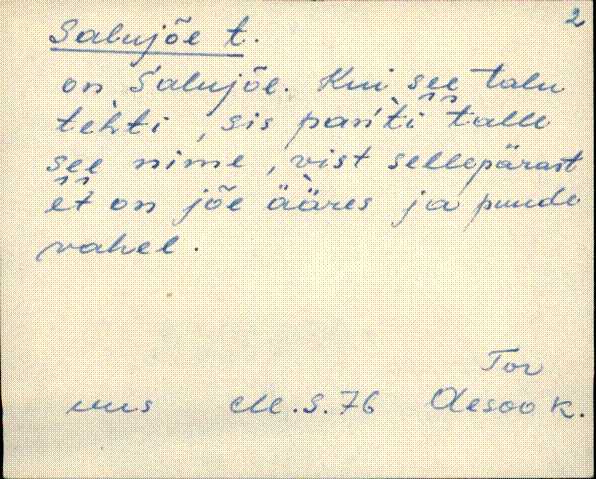 2
Salujõe t.
on Salujõe. Kui see talu
tehti, sis panti talle
see nime, vist sellepärast
et on jõe ääres ja puude
vahel.
Tor
uus M.S.76 Aesoo k.